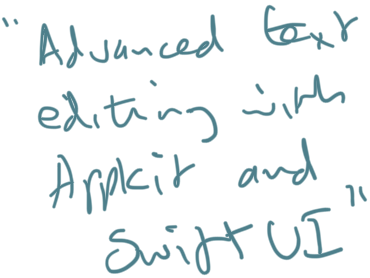 "Advanced text
editing with
Appkit and
Swift UI"